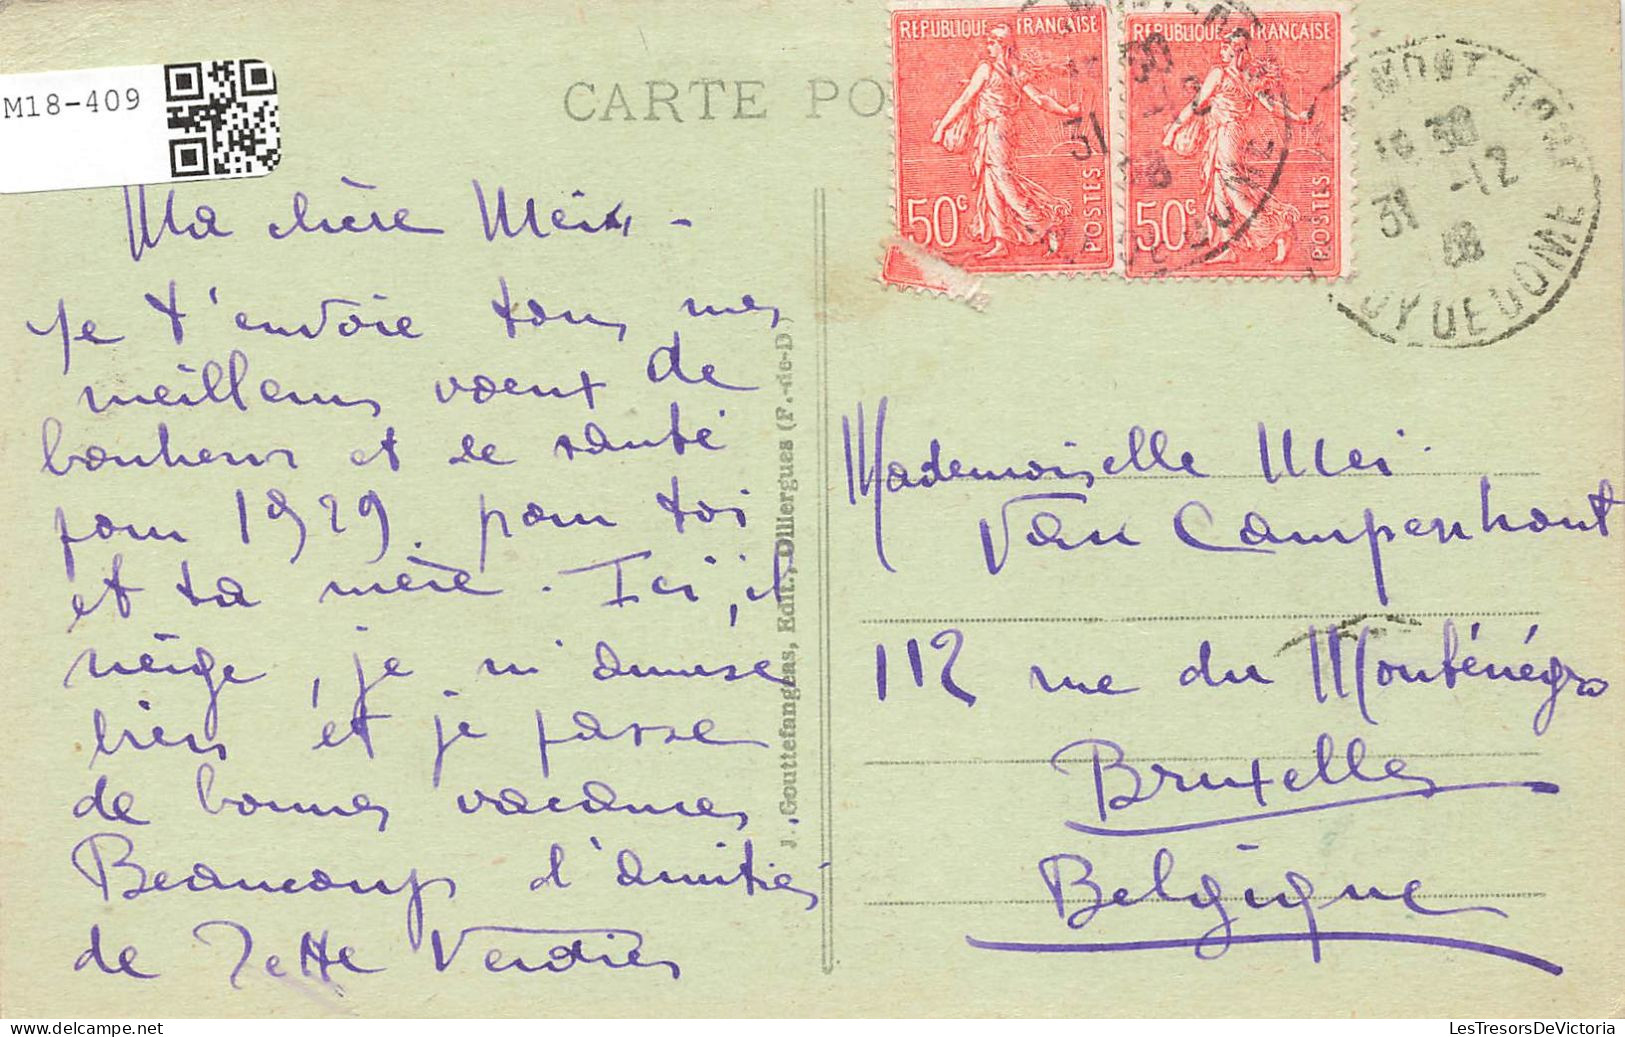 M18-409
CARTE PO
REPUBLIQUE FRANÇAISE
50c
POSTES
REPUBLIQUE FRANÇAISE
50c
POSTES
31 -12
PUY DE DOME
Ma chère Mei -
Je t'envoie tous mes
meilleurs vœux de
bonheur et de santé
pour 1929. pour toi
et ta mère. Ici, il
neige, je m'amuse
bien et je passe
de bonnes vacances.
Beaucoup d'amitiés
de Jette Verdier
J. Gouttefangeas, Edit., Olliergues (P.-de-D.)
Mademoiselle Mei
Van Campenhout
112 rue du Monténégro
Bruxelles
Belgique
LesTresorsDeVictoria